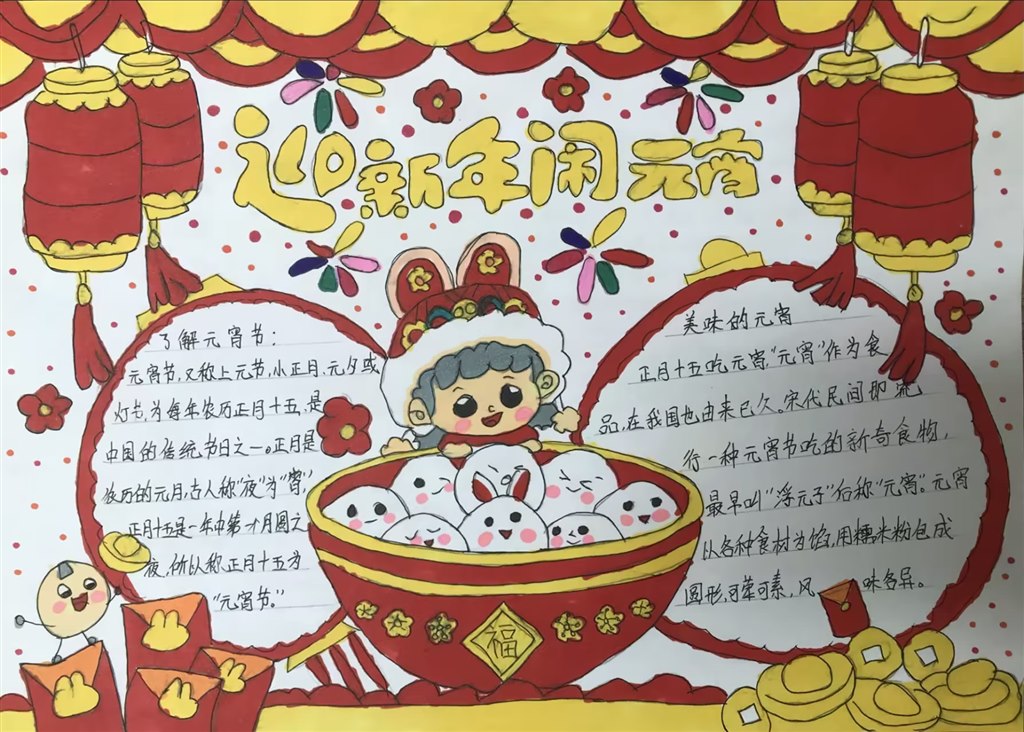 迎新年闹元宵
了解元宵节：
元宵节，又称上元节，小正月，元夕或
灯节，为每年农历正月十五，是
中国的传统节日之一。正月是
农历的元月，古人称“夜”为“宵”，
正月十五是一年中第一个月圆之
夜，所以称正月十五为
“元宵节。”
美味的元宵
正月十五吃元宵，“元宵”作为食
品，在我国也由来已久。宋代民间即流
行一种元宵节吃的新奇食物，
最早叫“浮元子”俗称“元宵”。元宵
以各种食材为馅，用糯米粉包成
圆形，可荤可素，风味各异。
福